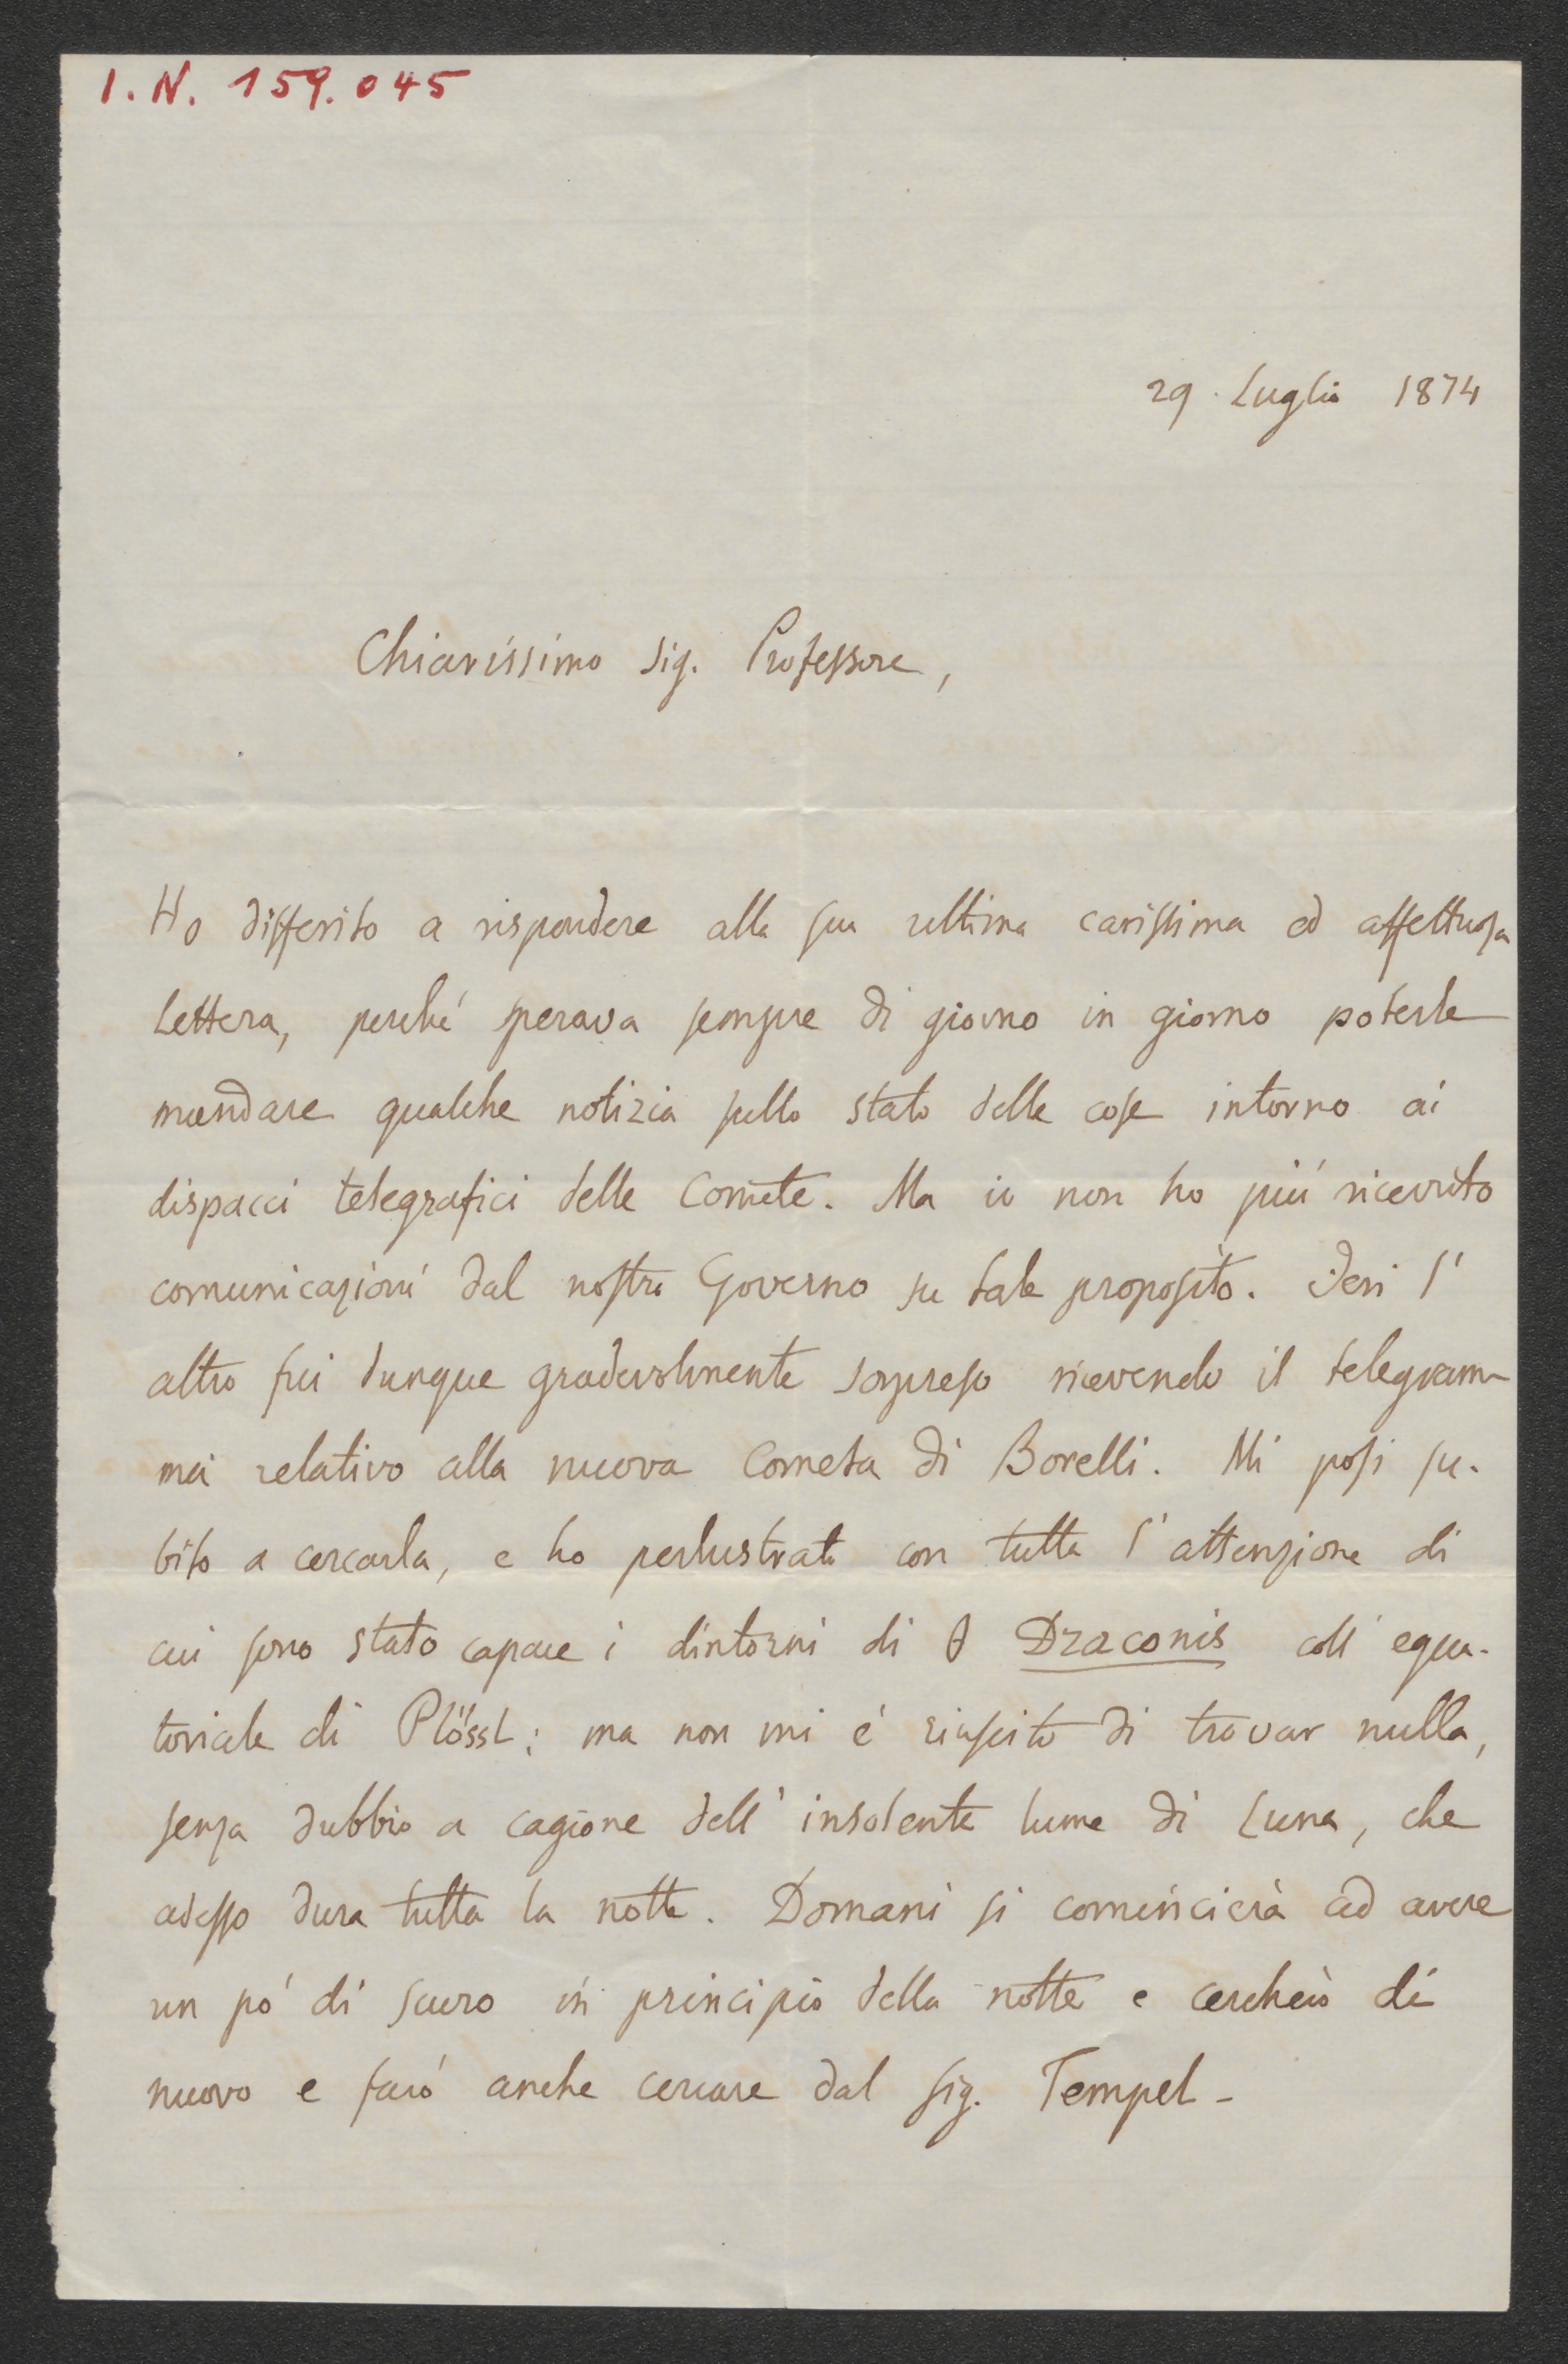 I. N. 159.045
29 Luglio 1874
Chiarissimo Sig. Professore,
Ho differito a rispondere alla sua ultima carissima ed affettuosa
lettera, perché sperava sempre di giorno in giorno poterle
mandare qualche notizia sullo stato delle cose intorno ai
dispacci telegrafici delle Comete. Ma io non ho più ricevuto
comunicazioni dal nostro Governo su tale proposito. Jeri l'
altro fui dunque gradevolmente sorpreso ricevendo il telegram-
ma relativo alla nuova Cometa di Borelli. Mi posi su-
bito a cercarla, e ho perlustrato con tutta l'attenzione di
cui sono stato capace i dintorni di Draconis coll' equa-
toriale di Plössl: ma non mi é riuscito di trovar nulla,
senza dubbio a cagione dell' insolente lume di Luna, che
adesso dura tutta la notte. Domani si comincierà ad avere
un pó di scuro in principio della notte e cercherò di
nuovo e faró anche cercare dal Sig. Tempel -